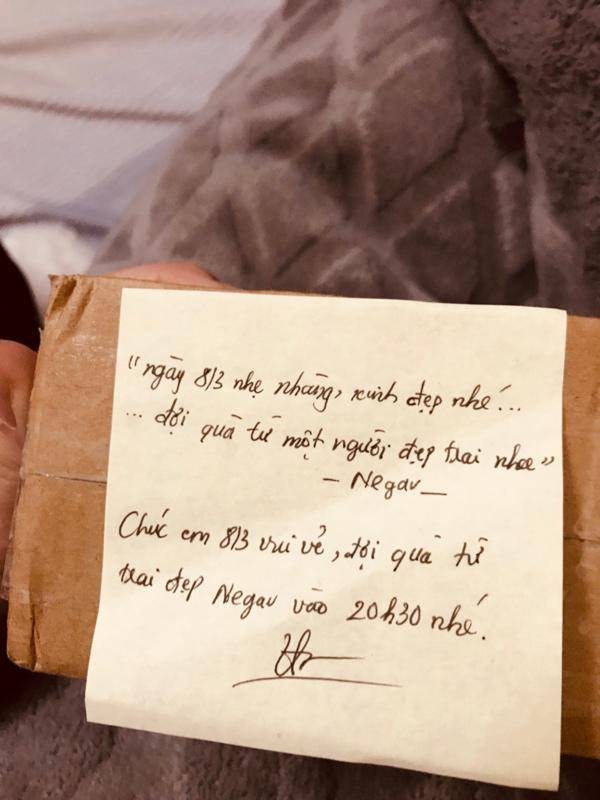 "ngày 8/3 nhẹ nhàng, xinh đẹp nhé...
... đợi quà từ một người đẹp trai nhee"
- Negav -
Chúc em 8/3 vui vẻ, đợi quà từ
trai đẹp Negav vào 20h30 nhé.